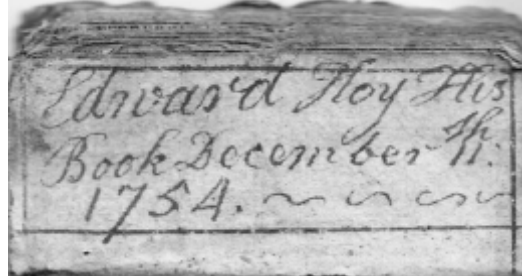 Edward Hoy His
Book December 11th:
1754.